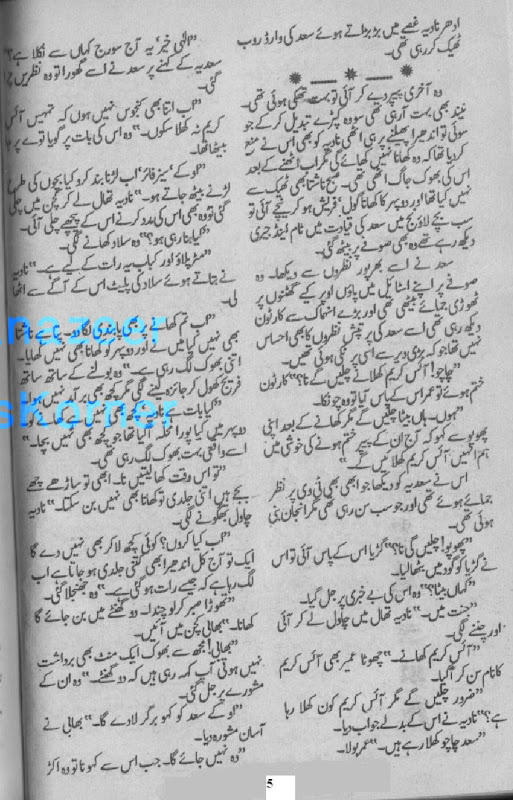 ادھر نادیہ غصے میں بڑبڑاتے ہوئے سعد کی وارڈ روب
ٹھیک کر رہی تھی۔
وہ آخری پیپر دے کر آئی تو بہت تھکی ہوئی تھی۔
نیند بھی بہت آ رہی تھی سو وہ کپڑے تبدیل کر کے جو
سوئی تو اندھیرا پھیلنے پر ہی اٹھی نادیہ کو بھی اس نے منع
کر دیا تھا کہ وہ کھانا نہیں کھائے گی مگر اب اٹھنے کے بعد
اس کی بھوک جاگ اٹھی تھی۔ صبح ناشتا بھی ٹھیک سے
نہیں کیا تھا اور دوپہر کا کھانا گول فریش ہو کر نیچے آئی تو
سب بچے لاؤنج میں سعد کی قیادت میں ٹام اینڈ جیری
دیکھ رہے تھے وہ بھی صوفے پر بیٹھ گئی۔
سعد نے اسے بھرپور نظروں سے دیکھا۔ وہ
صوفے پر اپنے اسٹائل میں پاؤں اوپر کیے گھٹنوں پر
ٹھوڑی جمائے بیٹھی تھی اور بڑے انہماک سے کارٹون
دیکھ رہی تھی اسے سعد کی پر تپش نظروں کا بھی احساس
نہیں تھا جو کہ بڑی دیر سے اسی پر ٹکی ہوئی تھیں۔
"چاچو! آئس کریم کھلانے چلیں گے نا؟" کارٹون
ختم ہوئے تو عمر اس کے پاس آیا تو وہ چونکا۔
"ہوں۔ ہاں بیٹا چلیں گے مگر کھانے کے بعد اپنی
پھوپو سے کہو کہ آج ان کے پیپر ختم ہونے کی خوشی میں
ہم انہیں آئس کریم کھلائیں گے۔"
اس نے سعدیہ کو دیکھا جو ابھی بھی ٹی وی پر نظر
جمائے ہوئے تھی اور جو سب سن رہی تھی مگر انجان بنی
ہوئی تھی۔
"پھوپو! چلیں گی نا؟" گڑیا اس کے پاس آئی تو اس
نے گڑیا کو گود میں بٹھا لیا۔
"کہاں بیٹا؟" وہ اس کی بے خبری پر جل گیا۔
"جنت میں۔" نادیہ تھال میں چاول لے کر آئی
اور چننے لگی۔
"آئس کریم کھانے۔" چھوٹا عمیر بھی آئس کریم
کا نام سن کر آ گیا۔
"ضرور چلیں گے مگر آئس کریم کون کھلا رہا
ہے؟" نادیہ نے اس کے بدلے جواب دیا۔
"سعد چاچو کھلا رہے ہیں۔" عمر بولا۔
"الٰہی خیر! یہ آج سورج کہاں سے نکلا ہے؟"
سعدیہ کے کہنے پر سعد نے اسے گھورا تو وہ نظریں چرا
گئی۔
"اب اتنا بھی کنجوس نہیں ہوں کہ تمہیں آئس
کریم نہ کھلا سکوں۔" وہ اس کی بات پر گویا توے پر جا
بیٹھا تھا۔
"او کے سیز فائر اب لڑنا بند کرو کیا بچوں کی طرح
لڑنے بیٹھ جاتے ہو۔" نادیہ تھال لے کر کچن میں چلی
گئی تو وہ بھی اس کی مدد کرنے اس کے پیچھے چلی آئی۔
"کیا بنا رہی ہو؟" وہ سلاد کھانے لگی۔
"مٹر پلاؤ اور کباب یہ رات کے لیے ہے۔" نادیہ
نے جتاتے ہوئے سلاد کی پلیٹ اس کے آگے سے اٹھا
لی۔
"اب تم کھانے پر بھی پابندی لگا دو۔ پتا ہے ناشتا
بھی نہیں کیا میں نے اور دوپہر کو کھانا بھی نہیں کھایا۔
اتنی بھوک لگ رہی ہے۔" وہ بولنے کے ساتھ ساتھ
فریج کھول کر جائزہ لینے لگی مگر کچھ بھی برآمد نہیں ہوا۔
دوپہر میں کیا پورا محلہ آ گیا تھا جو کچھ بھی نہیں بچا۔"
اسے واقعی بہت بھوک لگ رہی تھی۔
"تو اس وقت کھا لیتیں نا۔ ابھی تو ساڑھے چھ
بجے ہیں اتنی جلدی تو کھانا بھی نہیں بن سکتا۔" نادیہ
چاول بھگونے لگی۔
"اب کیا کروں؟ کوئی کچھ لا کر بھی نہیں دے گا
ایک تو آج کل اندھیرا بھی کتنی جلدی ہو جاتا ہے اب
لگ رہا ہے کہ جیسے رات ہو گئی ہے۔" وہ جھنجلا گئی۔
"تھوڑا صبر کر لو چندا۔ دو گھنٹے میں بن جائے گا
کھانا۔" بھابی کچن میں آئیں۔
"بھابی! مجھ سے بھوک ایک منٹ بھی برداشت
نہیں ہوتی آپ کہہ رہی ہیں کہ دو گھنٹے۔" وہ ان کے
مشورے پر جل گئی۔
"او کے سعد کو کہو برگر لا دے گا۔" بھابی نے
آسان مشورہ دیا۔
"وہ نہیں جائے گا۔ جب اس سے کہو نا تو وہ اکڑ
5
nazeer
skorner